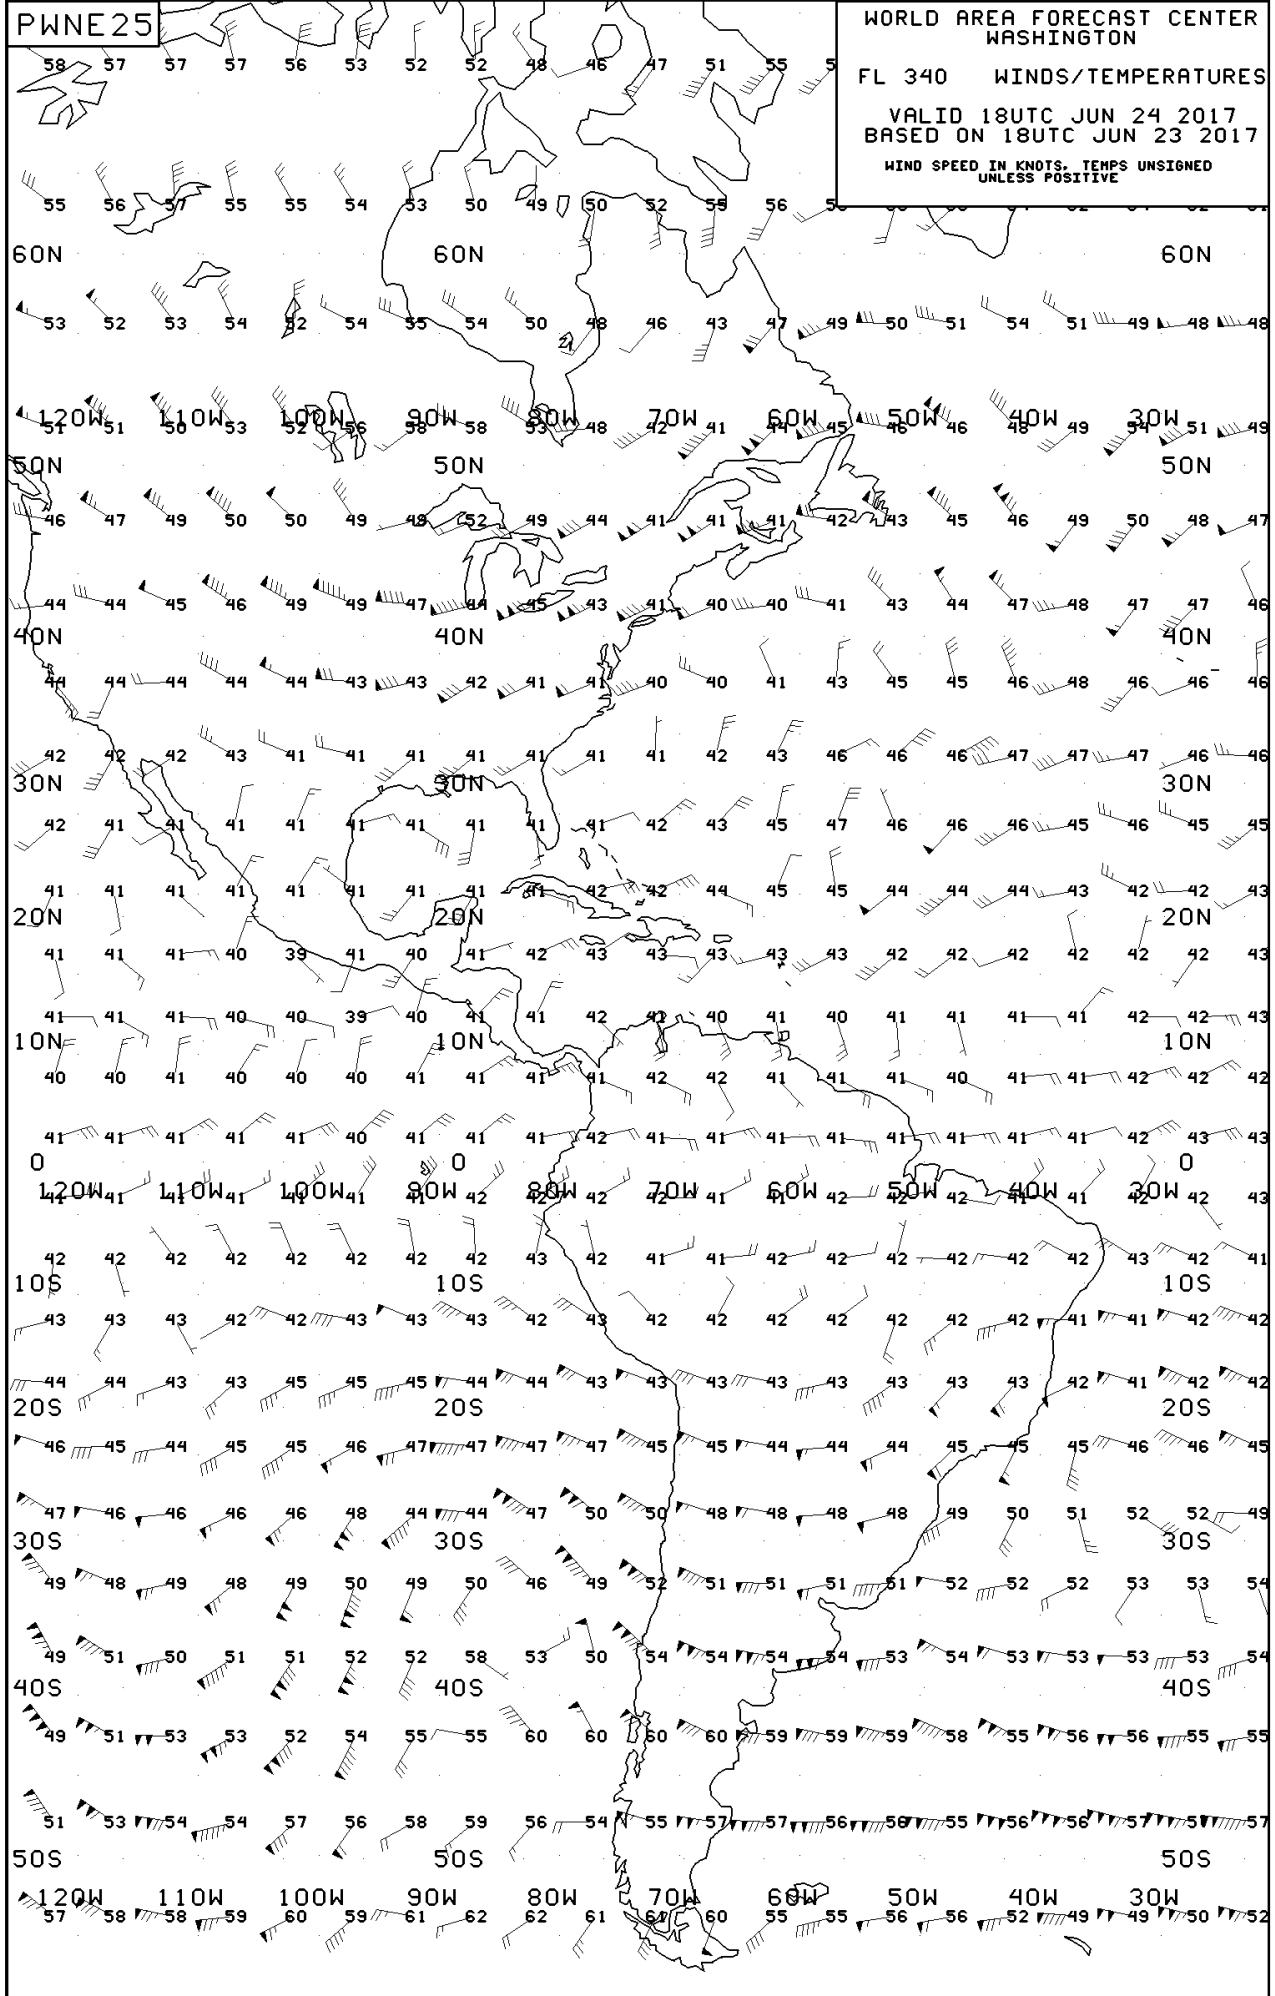 PWNE25
WORLD AREA FORECAST CENTER
WASHINGTON
FL 340 WINDS/TEMPERATURES
VALID 18UTC JUN 24 2017
BASED ON 18UTC JUN 23 2017
WIND SPEED IN KNOTS, TEMPS UNSIGNED
UNLESS POSITIVE
58 57 57 57 56 53 52 52 48 46 47 51 55
55 56 57 55 55 54 53 50 49 50 52 55 56
60N 60N 60N
53 52 53 54 52 54 55 54 50 48 46 43 47 49 50 51 54 51 49 48 48
120W 110W 100W 90W 80W 70W 60W 50W 40W 30W
51 51 50 53 52 56 58 58 53 48 42 41 44 45 46 46 48 49 54 51 49
50N 50N 50N
46 47 49 50 50 49 49 52 49 44 41 41 41 42 43 45 46 49 50 48 47
44 44 45 46 49 49 47 44 45 43 41 40 40 41 43 44 47 48 47 47 46
40N 40N 40N
44 44 44 44 44 43 43 42 41 41 40 40 41 43 45 45 46 48 46 46 46
42 42 42 43 41 41 41 41 41 41 41 42 43 46 46 46 47 47 47 46 46
30N 30N 30N
42 41 41 41 41 41 41 41 41 41 42 43 45 47 46 46 46 45 46 45 45
41 41 41 41 41 41 41 41 41 42 42 44 45 45 44 44 44 43 42 42 43
20N 20N 20N
41 41 41 40 39 41 40 41 42 43 43 43 43 43 42 42 42 42 42 42 43
41 41 41 40 40 39 40 41 41 42 41 40 41 40 41 41 41 41 42 42 43
10N 10N 10N
40 40 41 40 40 40 41 41 41 41 42 42 41 41 41 40 41 41 42 42 42
41 41 41 41 41 40 41 41 41 42 41 41 41 41 41 41 41 41 42 43 43
0 0 0
120W 110W 100W 90W 80W 70W 60W 50W 40W 30W
41 41 41 41 41 41 41 42 42 42 42 41 41 42 42 42 41 41 42 42 43
42 42 42 42 42 42 42 42 43 42 41 41 42 42 42 42 42 42 43 42 41
10S 10S 10S
43 43 43 42 42 43 43 43 42 43 42 42 42 42 42 42 42 41 41 42 42
44 44 43 43 45 45 45 44 44 43 43 43 43 43 43 43 43 42 41 42 42
20S 20S 20S
46 45 44 45 45 46 47 47 47 47 45 45 44 44 44 45 45 45 46 46 45
47 46 46 46 46 48 44 44 47 50 50 48 48 48 48 49 50 51 52 52 49
30S 30S 30S
49 48 49 48 49 50 49 50 46 49 52 51 51 51 51 52 52 52 53 53 54
49 51 50 51 51 52 52 58 53 50 54 54 54 54 53 54 53 53 53 53 54
40S 40S 40S
49 51 53 53 52 54 55 55 60 60 60 60 59 59 59 58 55 56 56 55 55
51 53 54 54 57 56 58 59 56 54 55 57 57 56 56 55 56 56 57 57 57
50S 50S 50S
120W 110W 100W 90W 80W 70W 60W 50W 40W 30W
57 58 58 59 60 59 61 62 62 61 61 60 55 55 56 56 52 49 49 50 52